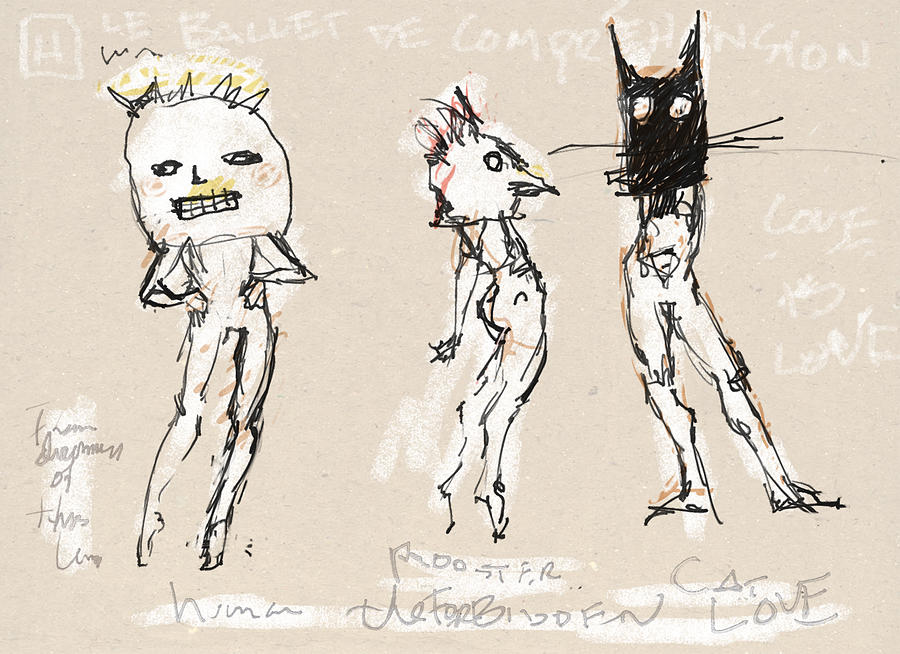 H LE BALLET DE COMPRÉHENSION
LOVE
IS
LOVE
From
of
this
human
ROOSTER
theFORBIDDEN
CAT
LOVE